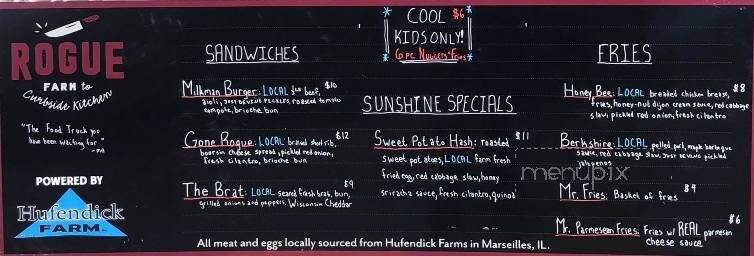 ROGUE
FARM to
Curbside Kitchen
"The Food Truck you
have been waiting for"
-me
POWERED BY
Hufendick
FARM
SANDWICHES
Milkman Burger: LOCAL beef, $10
aioli, JUST DEVINE PICKLES, roasted tomato
compote, brioche bun
Gone Rogue: LOCAL braised short rib, $12
boursin cheese spread, pickled red onion,
fresh cilantro, brioche bun
The Brat: LOCAL seared fresh brat, bun, $9
grilled onions and peppers, Wisconsin Cheddar
COOL $6
KIDS ONLY!
6 pc. Nuggets+Fries
SUNSHINE SPECIALS
Sweet Potato Hash: roasted $11
sweet potatoes, LOCAL farm fresh
fried egg, red cabbage slaw, honey
sriracha sauce, fresh cilantro, quinoa
FRIES
Honey Bee: LOCAL breaded chicken breast, $8
fries, honey-nut dijon cream sauce, red cabbage
slaw, pickled red onion, fresh cilantro
Berkshire: LOCAL pulled pork, maple barbeque
sauce, red cabbage slaw, JUST DEVINE pickled
jalapenos
Mr. Fries: Basket of fries $4
Mr. Parmesean Fries: Fries w/ REAL parmesan $6
cheese sauce
menupix
All meat and eggs locally sourced from Hufendick Farms in Marseilles, IL.